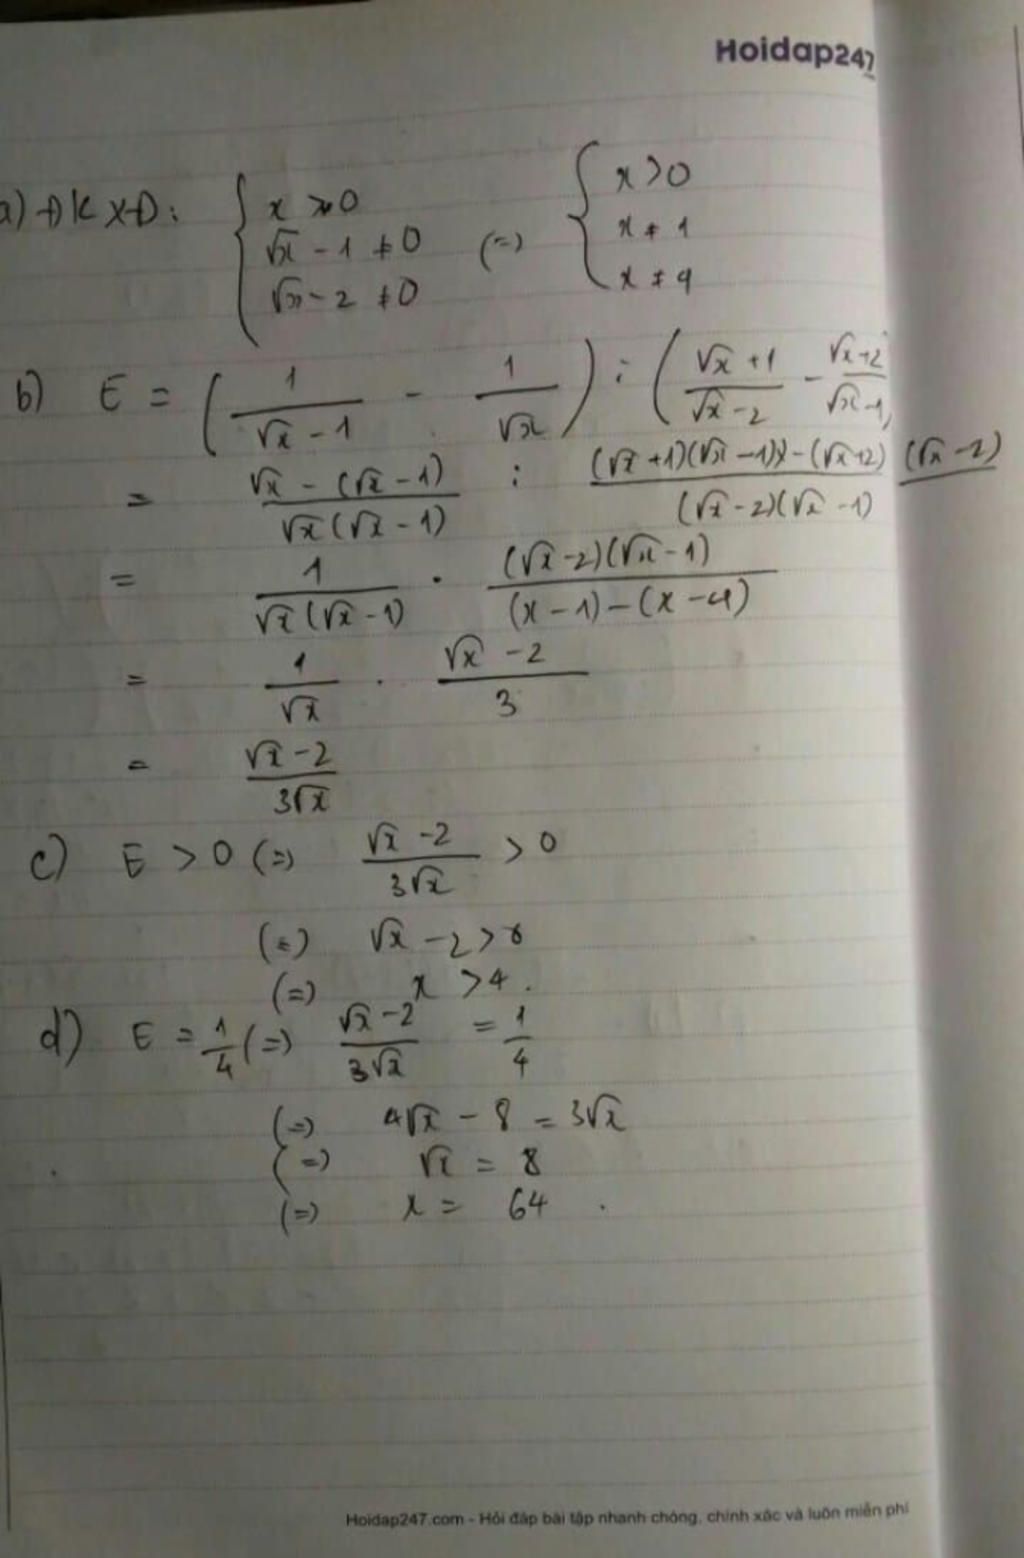 Hoidap247
a) ĐKXĐ: { x > 0 ; √x - 1 ≠ 0 ; √x - 2 ≠ 0 (=) { x > 0 ; x ≠ 1 ; x ≠ 4
b) E = ( 1/(√x - 1) - 1/√x ) : ( (√x + 1)/(√x - 2) - (√x + 2)/(√x - 1)
= (√x - (√x - 1))/(√x(√x - 1)) : ((√x + 1)(√x - 1) - (√x + 2)(√x - 2))/((√x - 2)(√x - 1))
= 1/(√x(√x - 1)) . ((√x - 2)(√x - 1))/((x - 1) - (x - 4))
= 1/√x . (√x - 2)/3
= (√x - 2)/(3√x)
c) E > 0 (=) (√x - 2)/(3√x) > 0
(=) √x - 2 > 0
(=) x > 4 .
d) E = 1/4 (=) (√x - 2)/(3√x) = 1/4
(=) 4√x - 8 = 3√x
(=) √x = 8
(=) x = 64 .
Hoidap247.com - Hỏi đáp bài tập nhanh chóng, chính xác và luôn miễn phí